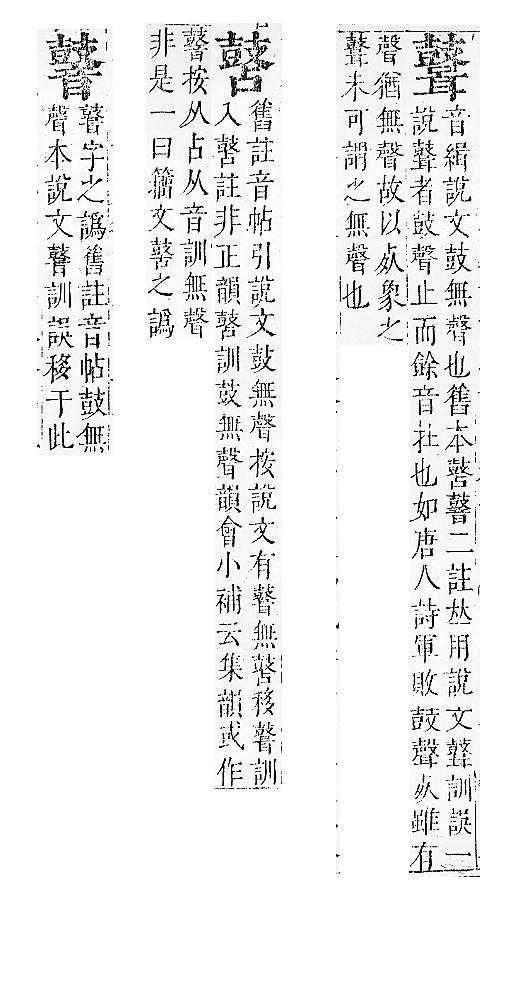 音緝說文鼓無聲也舊本二註𠀤用說文訓誤一
說者鼓聲止而餘音也如唐人詩軍敗鼓聲死雖有
聲猶無聲故以死象之
未可謂之無聲也
舊註音帖引說文鼓無聲按說文有無移訓
入註非正韻訓鼓無聲韻會小補云集韻或作
按从占从音訓無聲
非是一曰籀文之譌
字之譌舊註音帖鼓無
聲本說文訓誤移于此